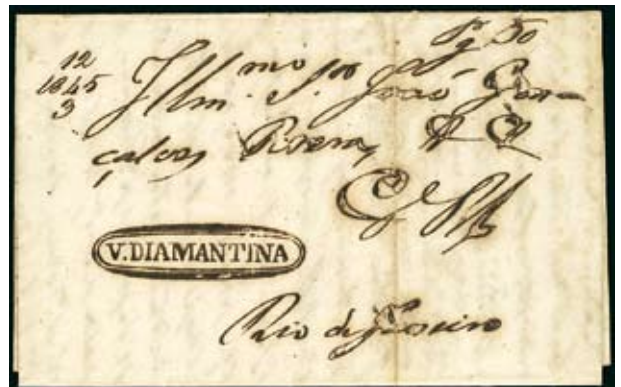 Pg 50
12
1845
3
Illm.mo Snr João Gon-
çalves Pereira,
V. DIAMANTINA
Rio de Janeiro